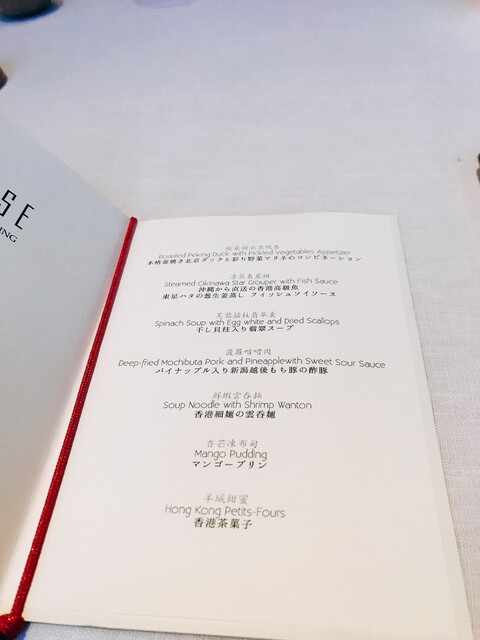 SE
ING
Roasted Peking Duck with Pickled Vegetables Appetizer
本格釜焼き北京ダックと彩り野菜マリネのコンビネーション
清蒸東星斑
Steamed Okinawa Star Grouper with Fish Sauce
沖縄から直送の香港高級魚
東星ハタの葱生姜蒸し フィッシュソイソース
Spinach Soup with Egg white and Dried Scallops
干し貝柱入り翡翠スープ
菠蘿咕嚕肉
Deep-fried Mochibuta Pork and Pineapplewith Sweet Sour Sauce
パイナップル入り新潟越後もち豚の酢豚
鮮蝦雲呑麺
Soup Noodle with Shrimp Wanton
香港細麺の雲呑麺
香芒凍布甸
Mango Pudding
マンゴープリン
羊城甜蜜
Hong Kong Petits-Fours
香港茶菓子